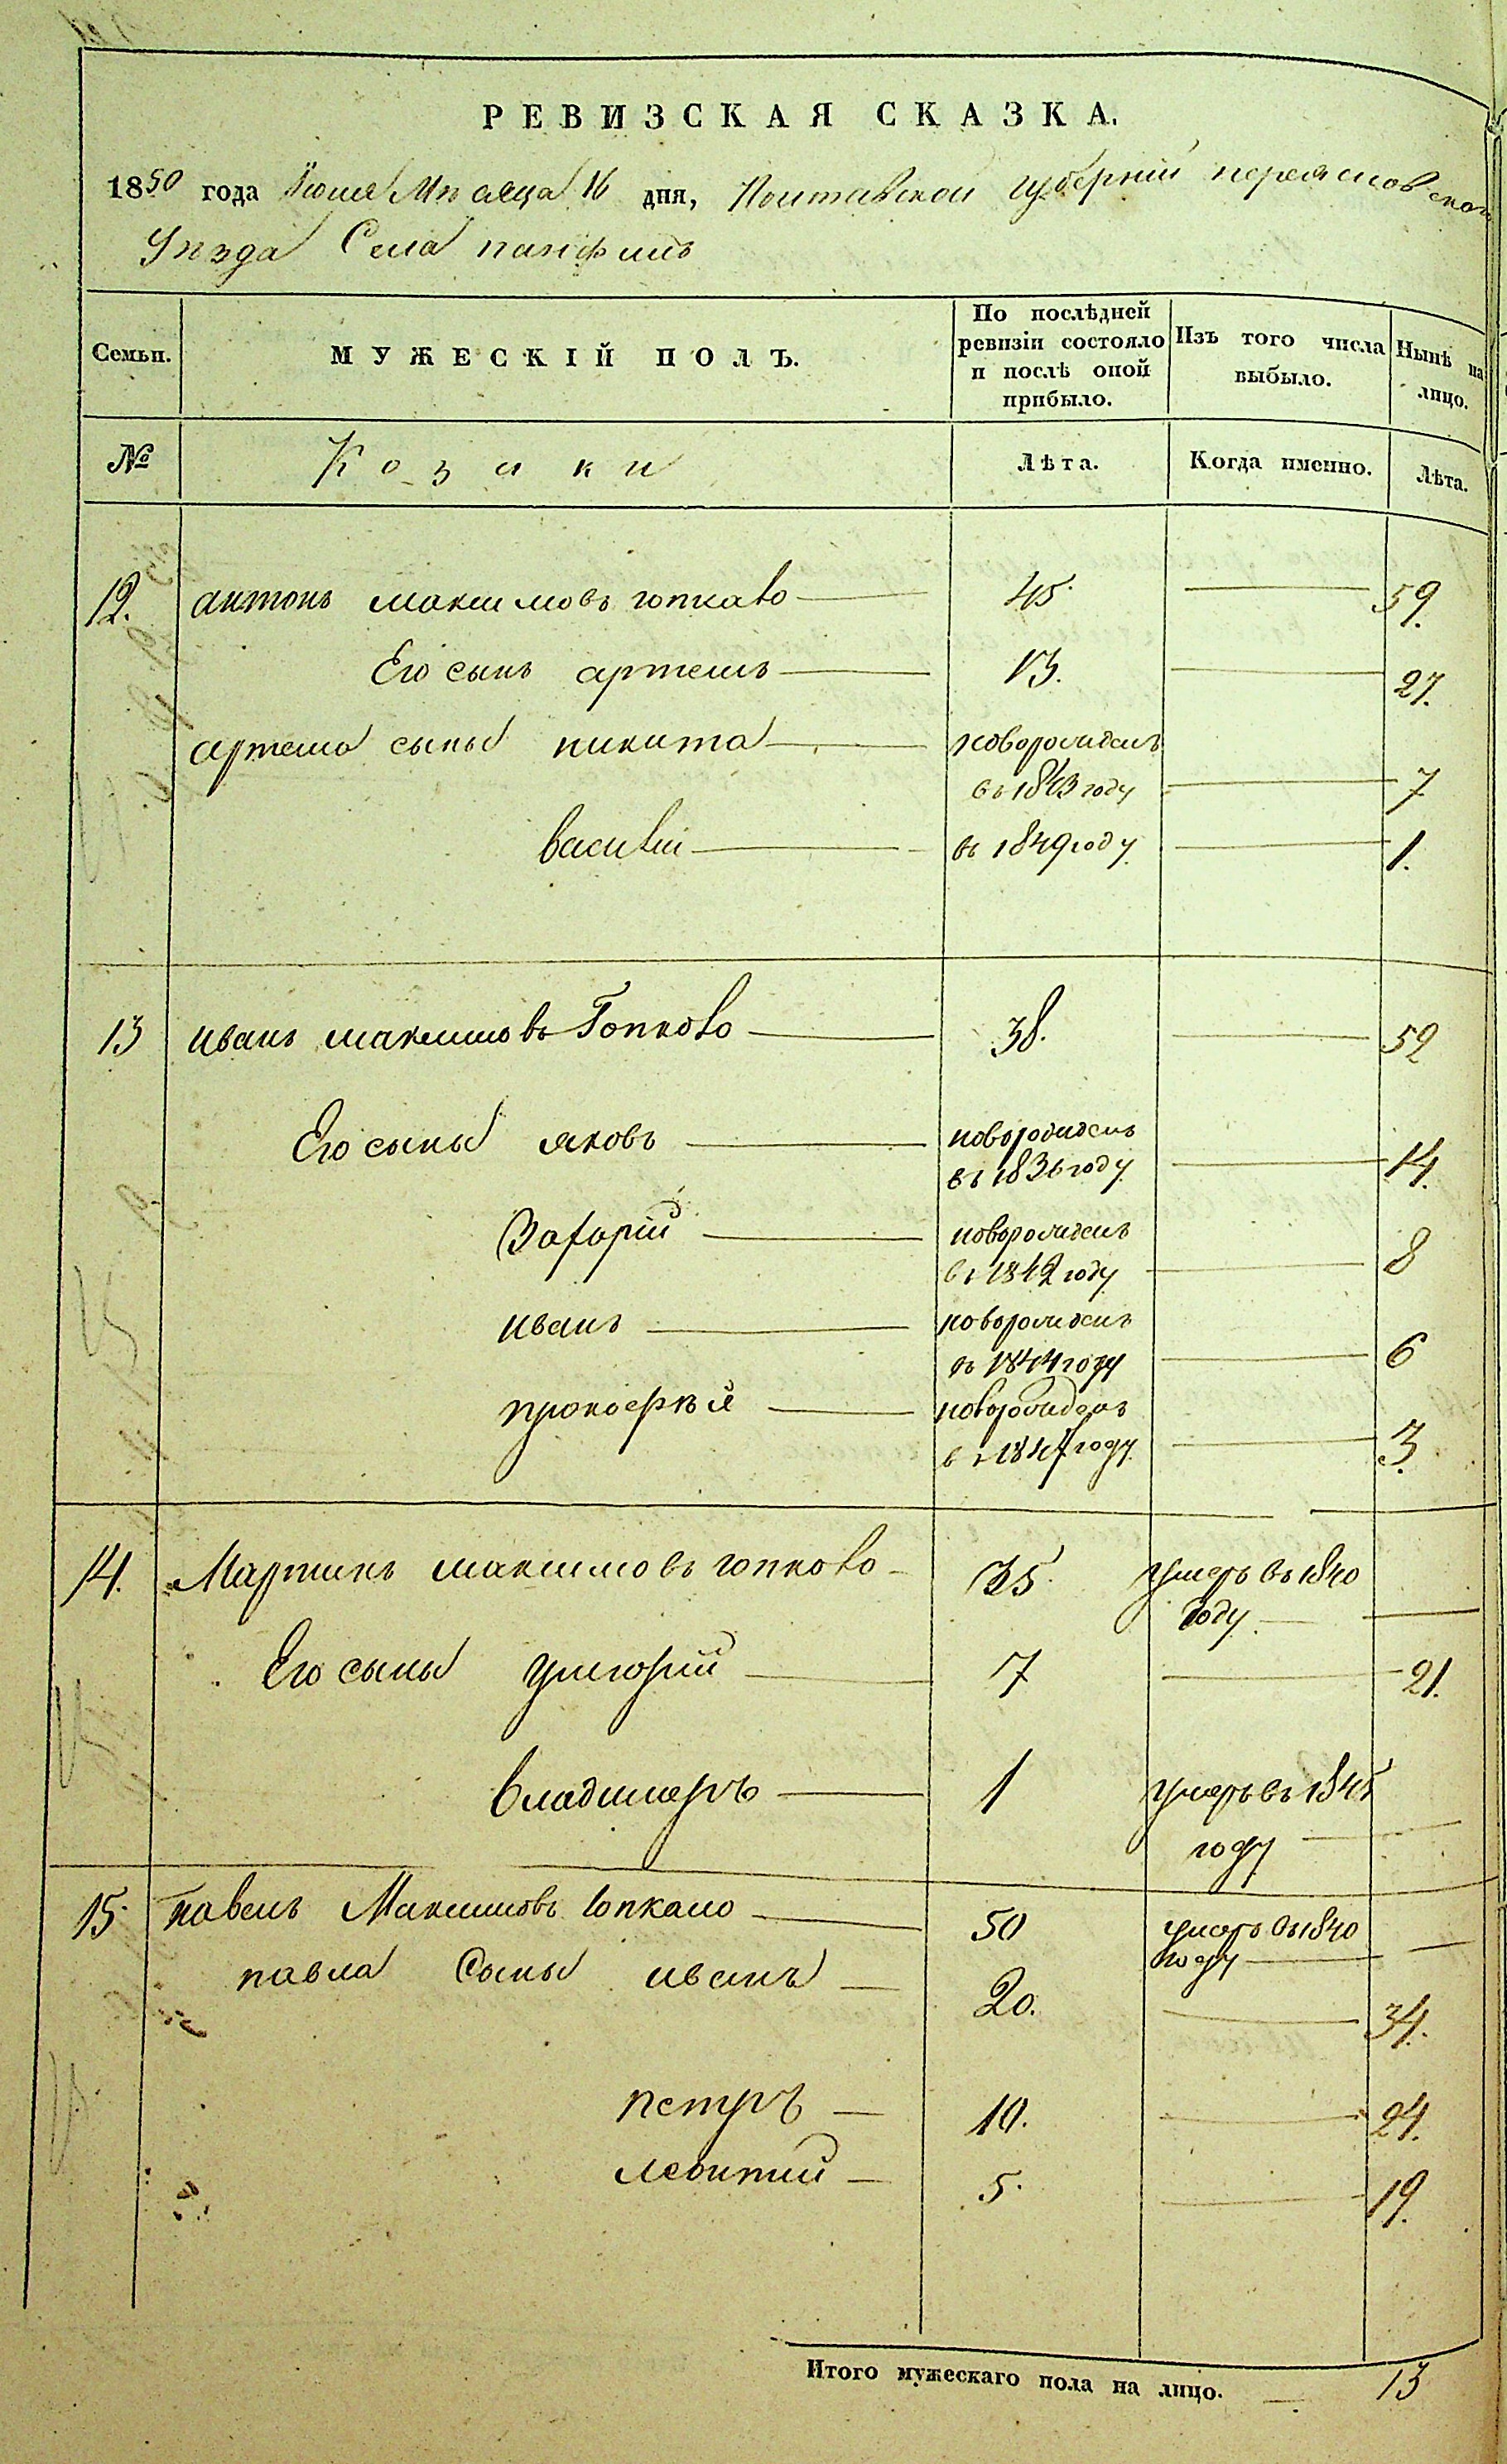 РЕВИЗСКАЯ СКАЗКА.
1850 года Июля Мѣсяца 16 дня, Полтавской губерніи переяслов ской
Уѣзда Села панфилъ
Семьи.
МУЖЕСКІЙ ПОЛЪ.
По послѣдней ревизіи состояло и послѣ оной прибыло.
Изъ того числа выбыло.
Нынѣ на лицо.
№ Козаки Лѣта. Когда именно. Лѣта.
12. антонъ максимовъ гопкало 45. 59.
Его сынъ артемъ 13. 27.
артема сыны никита новорожденъ
въ 1843 году 7
василій въ 1849 году 1.
13 иванъ максимовъ Гопколо 38. 52
Его сыны яковъ новорожденъ
въ 1836 году 14.
Захарій новорожденъ
въ 1842 году 8
иванъ новорожденъ
въ 1844 году 6
прокофѣй новорожденъ
въ 1847 году 3.
14. Мартинъ максимовъ гопколо 35. умеръ въ 1840
году
Его сыны григорій 7 21.
владимеръ 1 умеръ въ 1845
году
15. павелъ Максимовъ гопкало 50 умеръ въ 1840
году
павла Сыны иванъ 20. 34.
петръ 10. 24.
леонтий 5. 19.
Итого мужескаго пола на лицо. 13